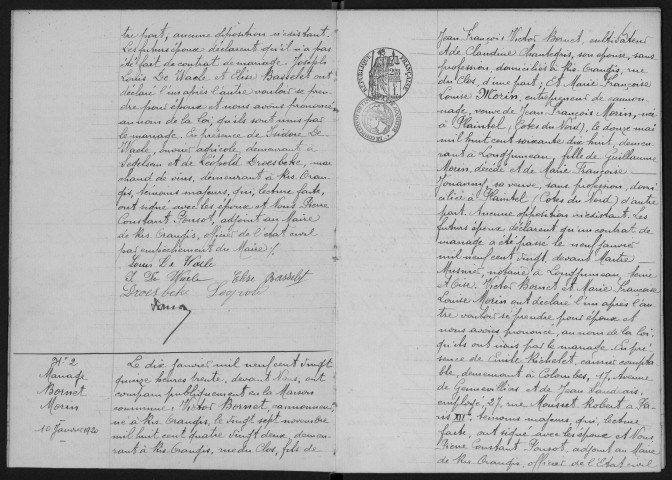 tre part, aucune opposition n'existant.
Les futurs époux déclarent qu'il n'a pas
été fait de contrat de mariage. Joseph
Louis De Waele et Elise Basselet ont
déclaré l'un après l'autre vouloir se pren-
dre pour époux et nous avons prononcé
au nom de la Loi, qu'ils sont unis par
le mariage. En présence de Isidore De
Waele, ouvrier agricole, demeurant à
et de Léopold Droesbeke, mar-
chand de vins, demeurant à Ris-Oran-
gis, témoins majeurs, qui, lecture faite,
ont signé avec les époux et Nous Pierre
Constant Ponsot, adjoint au Maire
de Ris-Orangis, officier de l'état civil
par empêchement du Maire /.
Louis De Waele
I. De Waele Elise Basselet
Droesbeke Léopold
N° 2
Mariage
Bornet
Morin
10 Janvier 1920
Le dix janvier mil neuf cent vingt
quinze heures trente, devant Nous, ont
comparu publiquement en la Maison
commune : Victor Bornet, cantonnier,
né à Ris-Orangis, le vingt sept novembre
mil huit cent quatre vingt deux, demeu-
rant à Ris-Orangis, rue du Clos, fils de
Jean François Victor Bornet, cultivateur
et de Claudine, son épouse, sans
profession, domiciliés à Ris-Orangis, rue
du Clos, d'une part ; Et Marie Françoise
Louise Morin, entrepreneur de camion-
nage, veuve de Jean François Morin, née
à Plaintel (Côtes du Nord), le douze mai
mil huit cent soixante dix huit, demeu-
rant à Longjumeau, fille de Guillaume
Morin, décédé et de Marie Françoise
Jouanny, sa veuve, sans profession, domi-
ciliée à Plaintel (Côtes du Nord) d'autre
part. Aucune opposition n'existant. Les
futurs époux déclarent qu'un contrat de
mariage a été passé le neuf janvier
mil neuf cent vingt, devant Maître
notaire à Longjumeau Seine
et Oise. Victor Bornet et Marie Françoise
Louise Morin ont déclaré l'un après l'au-
tre vouloir se prendre pour époux et
nous avons prononcé, au nom de la Loi,
qu'ils sont unis par le mariage. En pré-
sence de Emile Richelet, caissier compta-
ble, demeurant à Colombes, 17, Avenue
de Gennevilliers et de Jean
employé, 27, rue Mousset Robert à Pa-
ris XII, témoins majeurs, qui, lecture
faite, ont signé avec les époux et Nous
Pierre Constant Ponsot, adjoint au Maire
de Ris-Orangis, officier de l'Etat civil